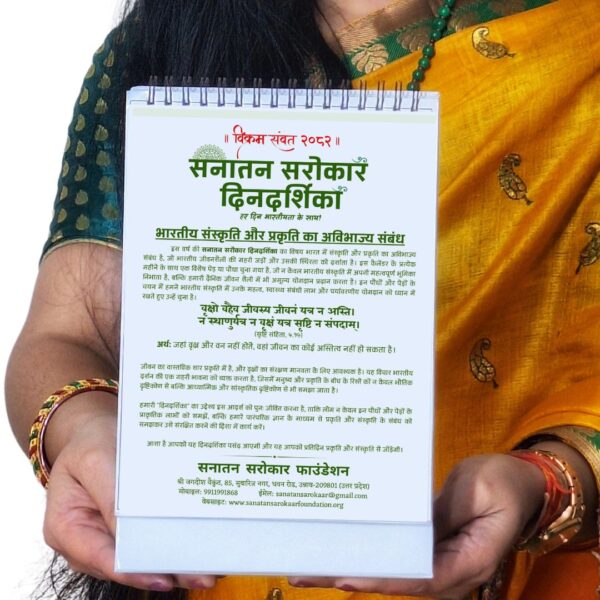 ॥ विक्रम संवत २०८२ ॥
सनातन सरोकार
दिनदर्शिका
हर दिन भारतीयता के साथ!
भारतीय संस्कृति और प्रकृति का अविभाज्य संबंध
इस वर्ष की सनातन सरोकार दिनदर्शिका का विषय भारत में संस्कृति और प्रकृति का अविभाज्य
संबंध है, जो भारतीय जीवनशैली की गहरी जड़ों और उसकी स्थिरता को दर्शाता है। इस कैलेंडर के प्रत्येक
महीने के साथ एक विशेष पेड़ या पौधा चुना गया है, जो न केवल भारतीय संस्कृति में अपनी महत्वपूर्ण भूमिका
निभाता है, बल्कि हमारी दैनिक जीवन शैली में भी अमूल्य योगदान प्रदान करता है। इन पौधों और पेड़ों के
चयन में हमने भारतीय संस्कृति में उनके महत्व, स्वास्थ्य संबंधी लाभ और पर्यावरणीय योगदान को ध्यान में
रखते हुए उन्हें चुना है।
वृक्षो वहैव जीवस्य जीवनं यत्र न अस्ति।
न स्थाणुर्यत्र न वृक्षं यत्र सृष्टि न संपदाम्।
अर्थ: जहां वृक्ष और वन नहीं होते, वहां जीवन का कोई अस्तित्व नहीं हो सकता है।
जीवन का वास्तविक सार प्रकृति में है, और वृक्षों का संरक्षण मानवता के लिए आवश्यक है। यह विचार भारतीय
दर्शन की एक गहरी भावना को व्यक्त करता है, जिसमें मनुष्य और प्रकृति के बीच के रिश्ते को न केवल भौतिक
दृष्टिकोण से बल्कि आध्यात्मिक और सांस्कृतिक दृष्टिकोण से भी समझा जाता है।
हमारी "दिनदर्शिका" का उद्देश्य इस आदर्श को पुनः जीवित करना है, ताकि लोग न केवल इन पौधों और पेड़ों के
प्राकृतिक लाभों को समझें, बल्कि हमारे पारंपरिक ज्ञान के माध्यम से प्रकृति और संस्कृति के संबंध को
समझकर उसे संरक्षित करने की दिशा में कार्य करें।
आशा है आपको यह दिनदर्शिका पसंद आएगी और यह आपको प्रतिदिन प्रकृति और संस्कृति से जोड़ेगी।
सनातन सरोकार फाउंडेशन
श्री जगदीश वैकुंत, 85, मुखार्जि नगर, पवन रोड, उन्नाव-209801 (उत्तर प्रदेश)
मोबाइल: 9911991868 ईमेल: sanatansarokaar@gmail.com
वेबसाइट: www.sanatansarokaarfoundation.org